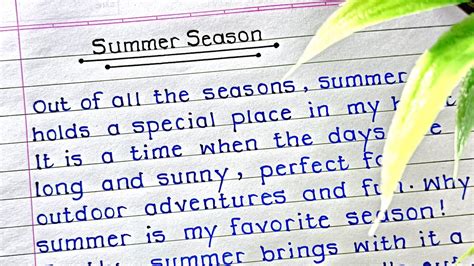 Summer Season
Out of all the seasons, summer
holds a special place in my
It is a time when the days
long and sunny, perfect
outdoor adventures and fun. Why
summer is my favorite season!
summer brings with it a